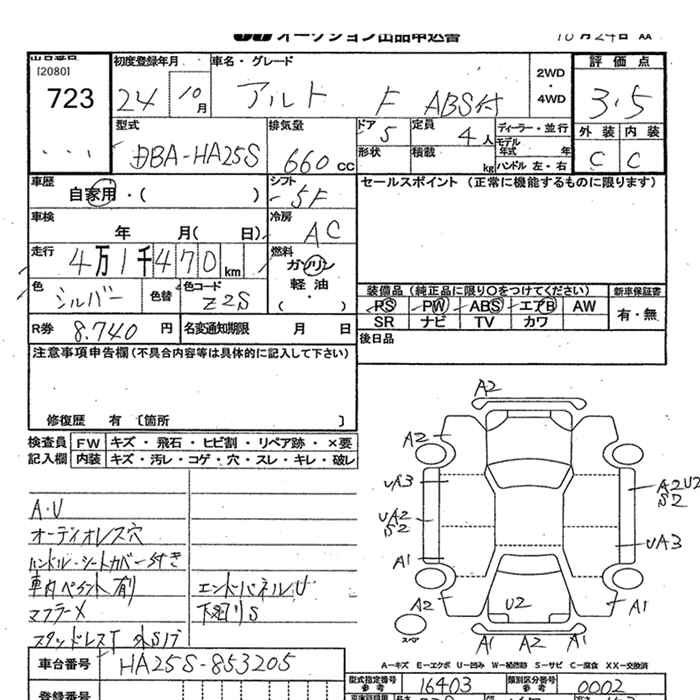 オークション出品申込書 10月24日 AA
出品番号
[2080]
723
初度登録年月
24 10月
車名・グレード
アルト F ABS付
2WD
・
4WD
評価点
3.5
型式
DBA-HA25S
排気量
660 CC
ドア
5
定員
4人
形状
積載
kg
ディーラー・並行
モデル年式 年
ハンドル 左・右
外装 内装
C C
車歴
自家用・( )
シフト
5F
セールスポイント (正常に機能するものに限ります)
車検
年 月( 日)
冷房
AC
走行
4万1千470km
燃料
ガソリン
軽油
( )
色
シルバー
色替
色コード
Z2S
装備品 (純正品に限り○をつけてください)
新車保証書
PS PW ABS エアB AW
SR ナビ TV カワ
有・無
R券 8.740 円
名変通知期限 月 日
後日品
注意事項申告欄 (不具合内容等は具体的に記入して下さい)
修復歴 有 〔箇所 〕
検査員 FW キズ・飛石・ヒビ割・リペア跡・×要
記入欄 内装 キズ・汚レ・コゲ・穴・スレ・キレ・破レ
A・U
オーディオレス穴
ハンドル・シートカバー付き
車内ペイント有り
エンドパネルU
マフラーX
下廻りS
スタッドレスT
車台番号 HA25S-853205
登録番号
A2
A2
UA3
UA2
S2
A1
A2
A2U2
S2
UA3
A1
U2
スペア
A1 A2 A1
A-キズ E-エクボ U-凹み W-補修跡 S-サビ C-腐食 XX-交換済
型式指定番号
参考
16403
類別区分番号
参考
0002